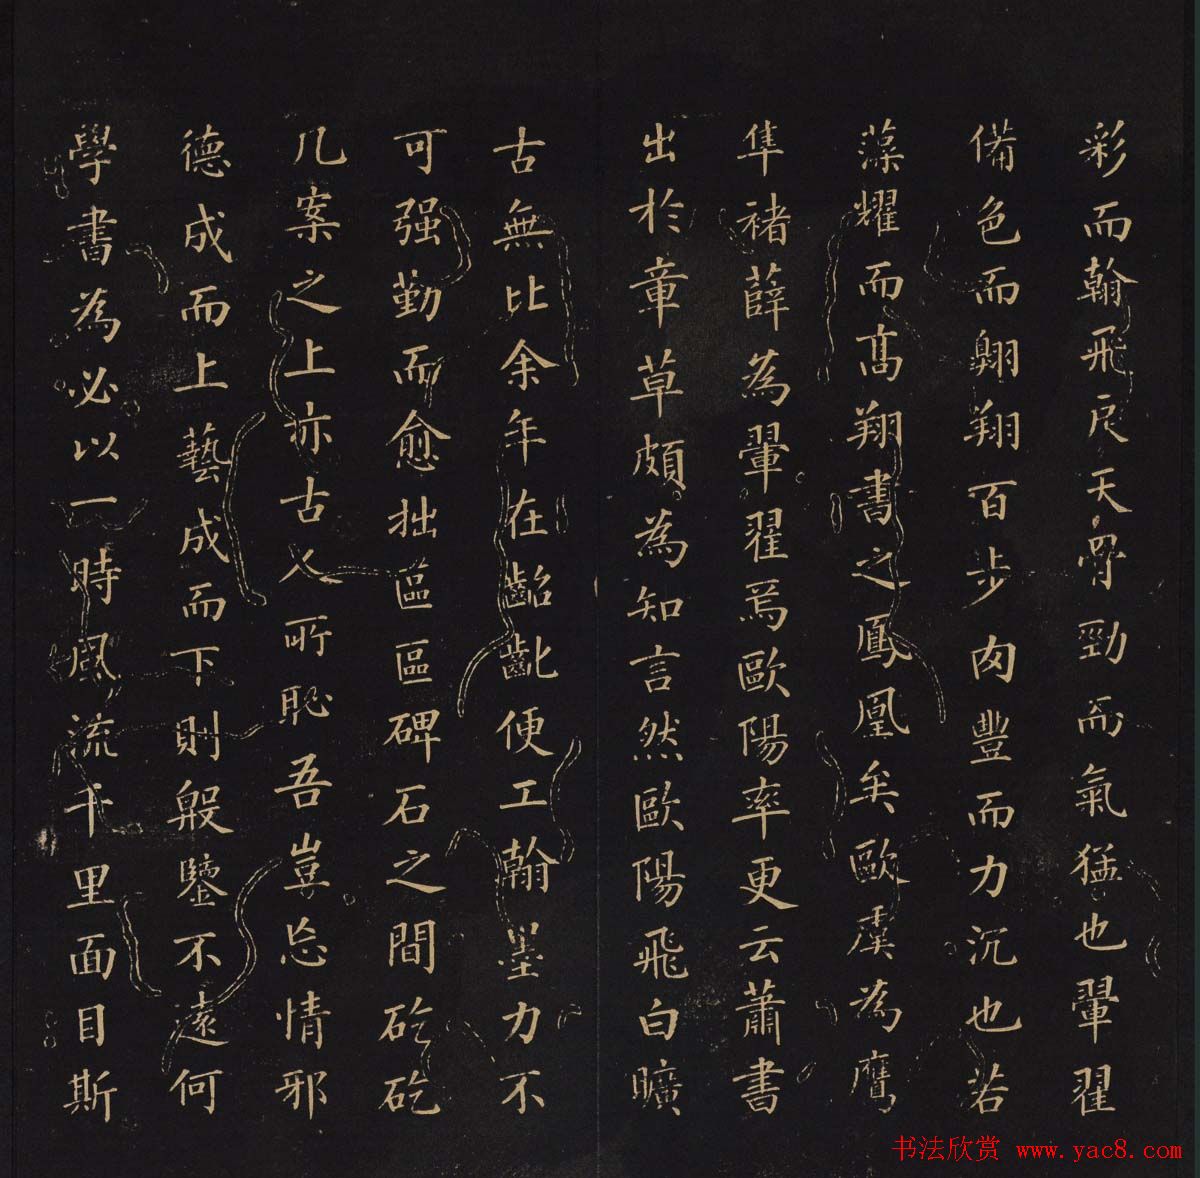 彩而翰飛戾天骨勁而氣猛也翬翟
備色而翱翔百步肉豐而力沉也若
藻耀而高翔書之鳳凰矣歐虞為鷹
隼褚薛為翬翟焉歐陽率更云蕭書
出於章草頗為知言然歐陽飛白曠
古無比余年在齠齔便工翰墨力不
可强勤而愈拙區區碑石之間矻矻
几案之上亦古人所恥吾豈忘情邪
德成而上藝成而下則殷鑒不遠何
學書為必以一時風流千里面目斯
书法欣赏 www.yac8.com